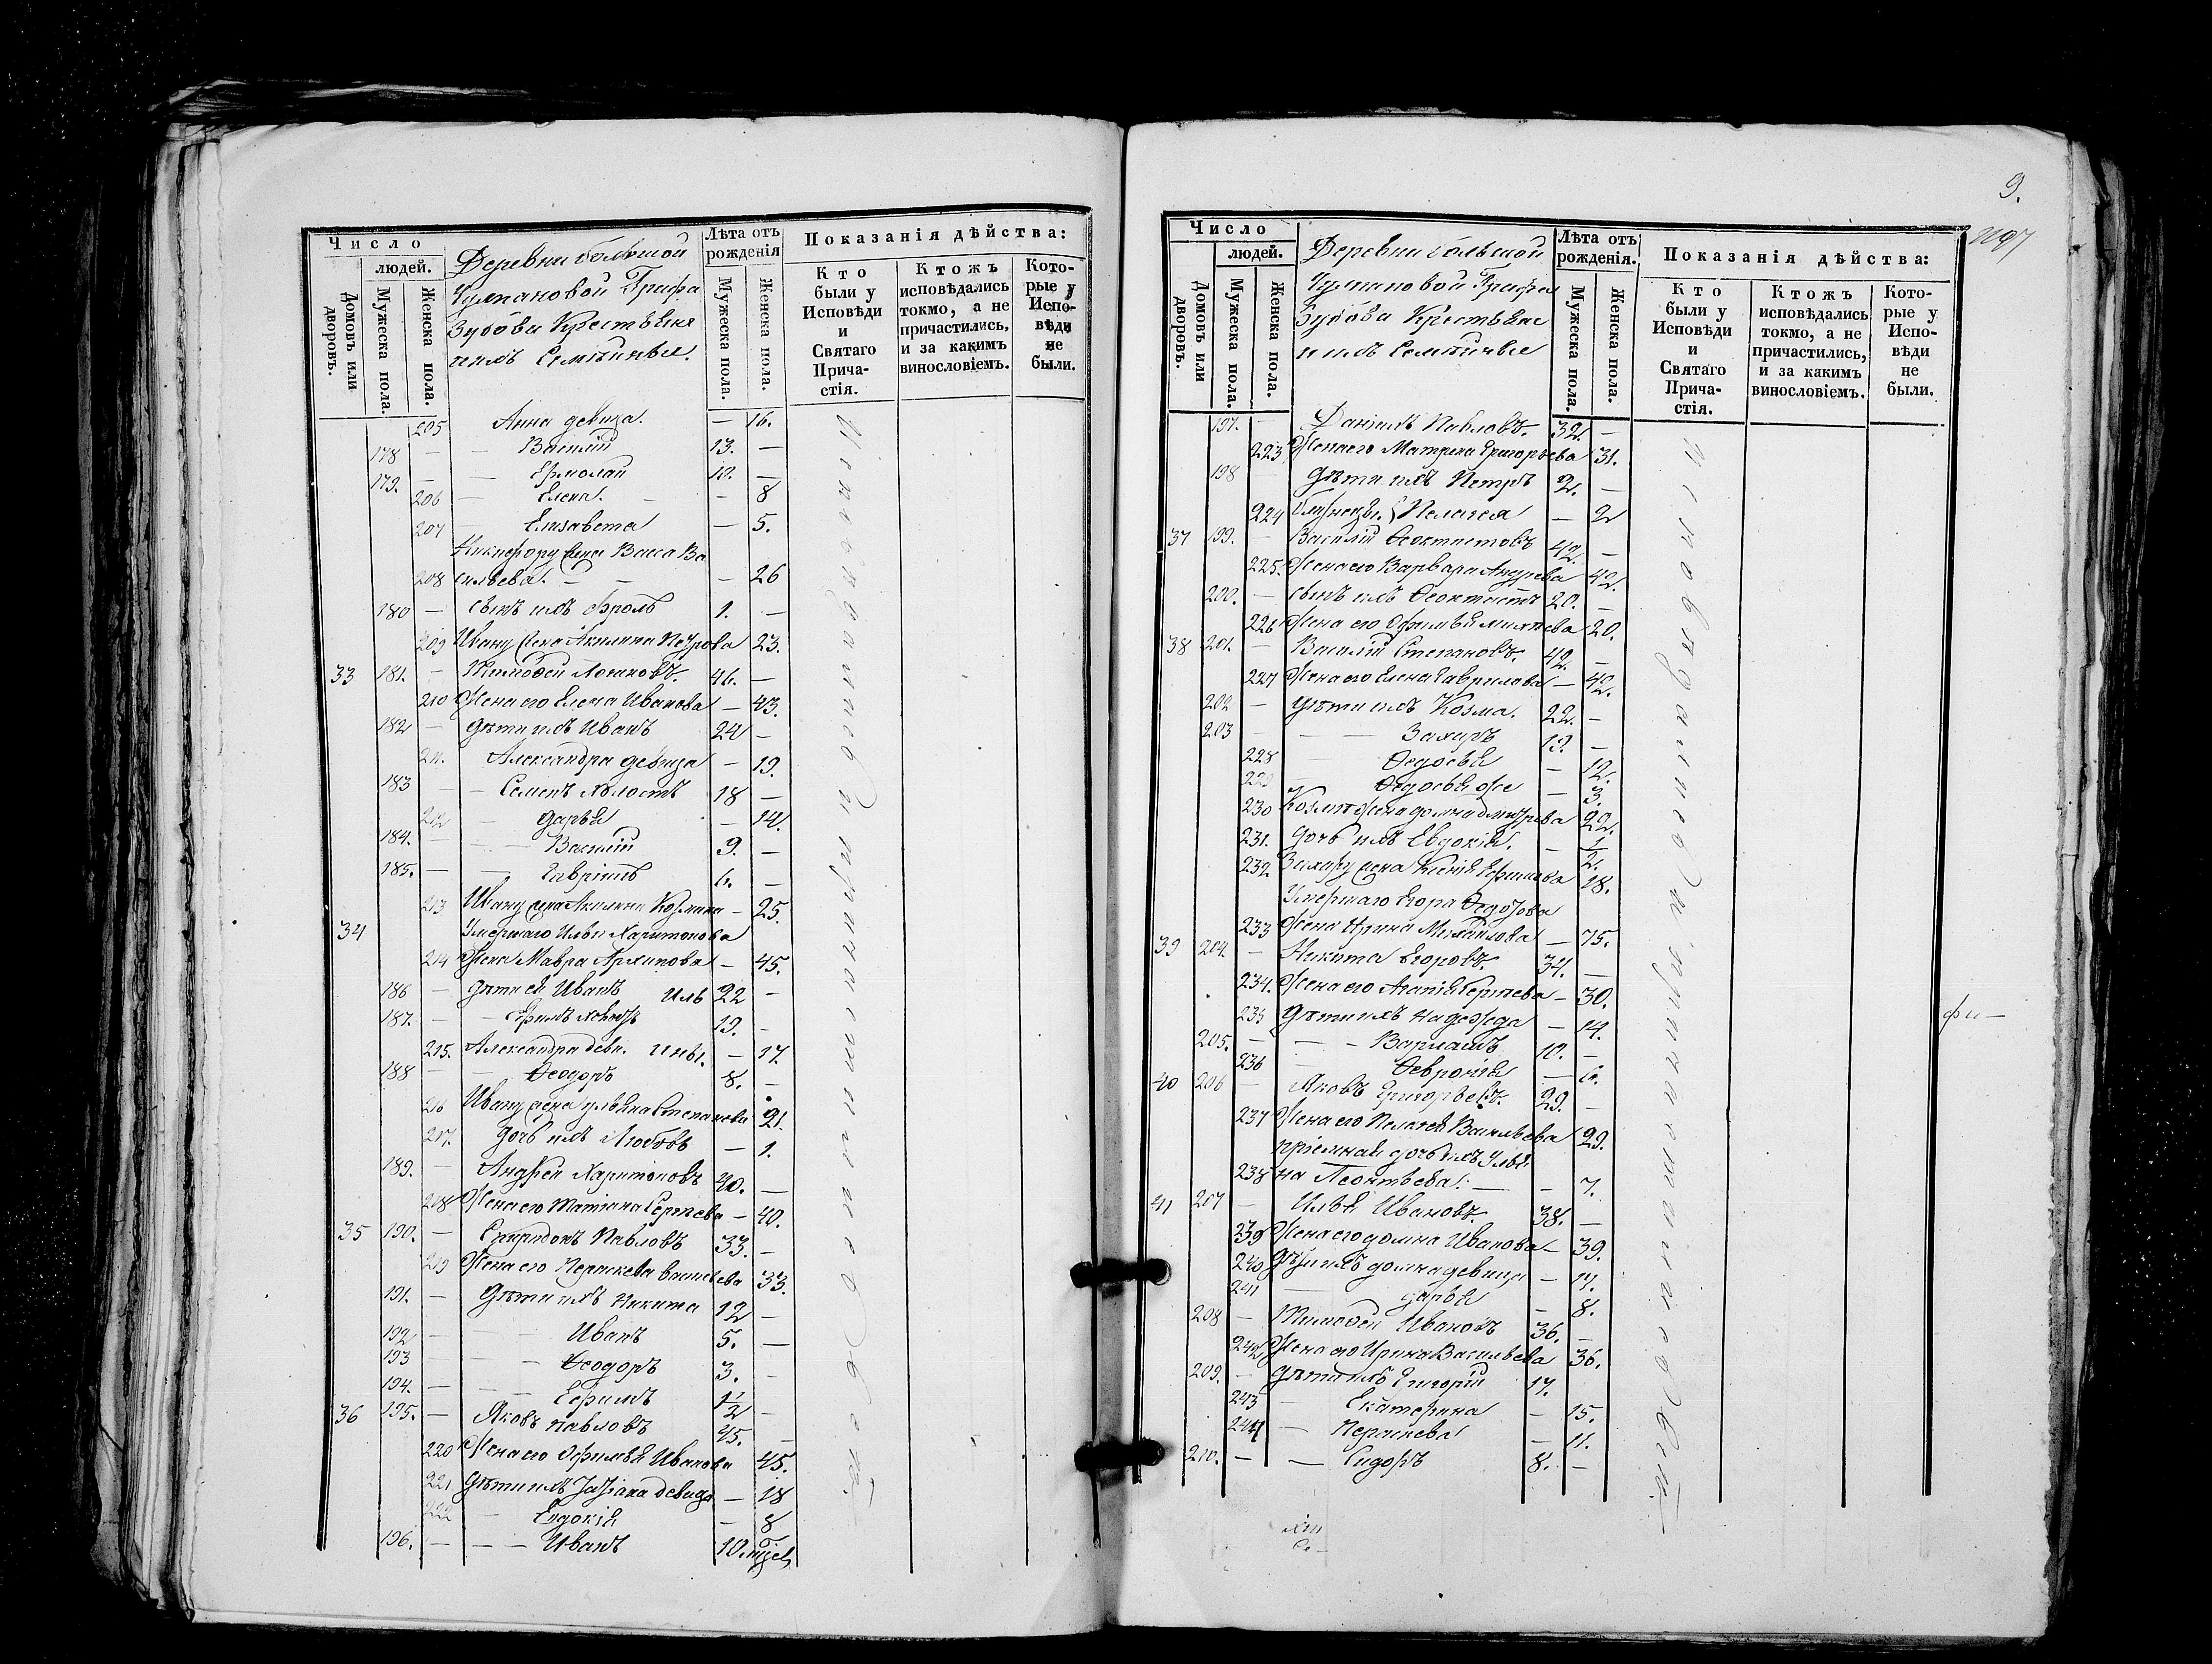 Число
людей.
Домовъ или дворовъ.
Мужеска пола.
Женска пола.
Деревни большой
Чулпановой Графа
Зубова Крестьяне
и ихъ Семѣйныя.
Лѣта отъ рожденія
Мужеска пола.
Женска пола.
Показанія дѣйства:
Кто были у Исповѣди и Святаго Причастія.
Ктожъ исповѣдались токмо, а не причастились, и за какимъ винословіемъ.
Которые у Исповѣди не были.
205 Анна девица. — 16.
178 — — Василій 13. —
179. — — Ермолай 10. —
206 — Елена. — — 8
207 — Елизавета — 5.
Никифору жена Васса Ва
208 сильева. — — — 26
180 — сынъ ихъ Фролъ 1. —
209 Ивану жена Акилина Петрова 23.
33 181. — Тимофей Логиновъ. 46. —
210 Жена его Елена Иванова — 43.
182 — дѣти ихъ Иванъ 24 —
211. Александра девица — 19.
183 — — Семенъ холостъ 18 —
212 — Дарья — 14.
184. — — — Василій 9. —
185. — — Гавріилъ 6. —
213 Ивану жена Акилина Козмина — 25.
34 Умершаго Ильи Харитонова
214 Жена Мавра Архипова — 45.
186 — дѣти ей Иванъ 22 —
187. — — Ефимъ холостъ 19. —
215. Александра деви. — 17.
188 — — Ѳеодоръ 8. —
216 Ивану жена Ульяна Степанова 21.
217. дочь ихъ Любовь — 1.
189. — Андрей Харитоновъ 40. —
218 Жена его Татіана Сергѣева — 40.
35 190. — Спиридонъ Павловъ 33. —
219 Жена его Пераскева Васильева 33.
191. — Дѣти ихъ Никита 12 —
192 — — — Иванъ 5. —
193 — — — Ѳеодоръ 3. —
194. — — — Ефимъ 1/2 —
36 195. — Яковъ Павловъ 45. —
220 Жена его Офимья Иванова 45.
221 Дѣти ихъ Татіана девица — 18
222 — Евдокія — 8
196. — — — Иванъ 10. мѣсец.
Исповѣдались и причастились всѣ.
9.
1197
Число
людей.
Домовъ или дворовъ.
Мужеска пола.
Женска пола.
Деревни большой
Чулпановой Графа
Зубова Крестьяне
и ихъ Семѣйныя
Лѣта отъ рожденія.
Мужеска пола.
Женска пола.
Показанія дѣйства:
Кто были у Исповѣди и Святаго Причастія.
Ктожъ исповѣдались токмо, а не причастились, и за какимъ винословіемъ.
Которые у Исповѣди не были.
197. — Даніилъ Павловъ. 32. —
223 Жена его Матрена Григорьева 31.
198 Дѣти ихъ Петръ 2. —
224 близнецы. Пелагея — 2
37 199. — Василій Ѳеоктистовъ 42. —
225. Жена его Варвара Андреева 42.
200. — сынъ ихъ Ѳеоктистъ 20. —
226 Жена его Офимья 20.
38 201. — Василій Степановъ. 42. —
227 Жена его Елена Гаврилова — 42.
202 — Дѣти ихъ Козма. 22. —
203 — — — Захаръ 19. —
228 — Ѳедосья — 12.
229 — Ѳедосья же — 3.
230 Козмѣ жена Домна Дмитрева 22.
231. дочь ихъ Евдокія. — 1/2.
232 Захару жена Ксенія Ефимова 18.
Умершаго Егора Ѳедотова
233 Жена Ирина Михайлова — 75.
39 204. — Никита Егоровъ. 34. —
234. Жена его Агапія Сергѣева — 30.
235 Дѣти ихъ Надежда — 14.
205. — — — Варлаамъ 10. —
236 Ѳевронія — 6.
40 206 — Яковъ Григорьевъ. 29. —
237 Жена его Пелагея Васильева 29.
пріемная дочь ихъ Улья
238 на Леонтьева. — — 7.
41 207 — Илья Ивановъ. 38. —
239 Жена его Домна Иванова — 39.
240 Дѣти ихъ Домна девица — 17.
241 — Дарья — 8.
208 — Тимофей Ивановъ 36. —
242 Жена его Ирина Васильева 36.
209. — Дѣти ихъ Григорій 17. —
243 — Екатерина — 15.
244 — Пераскева — 11.
210. — — Сидоръ 8. —
Исповѣдались и причастились всѣ.